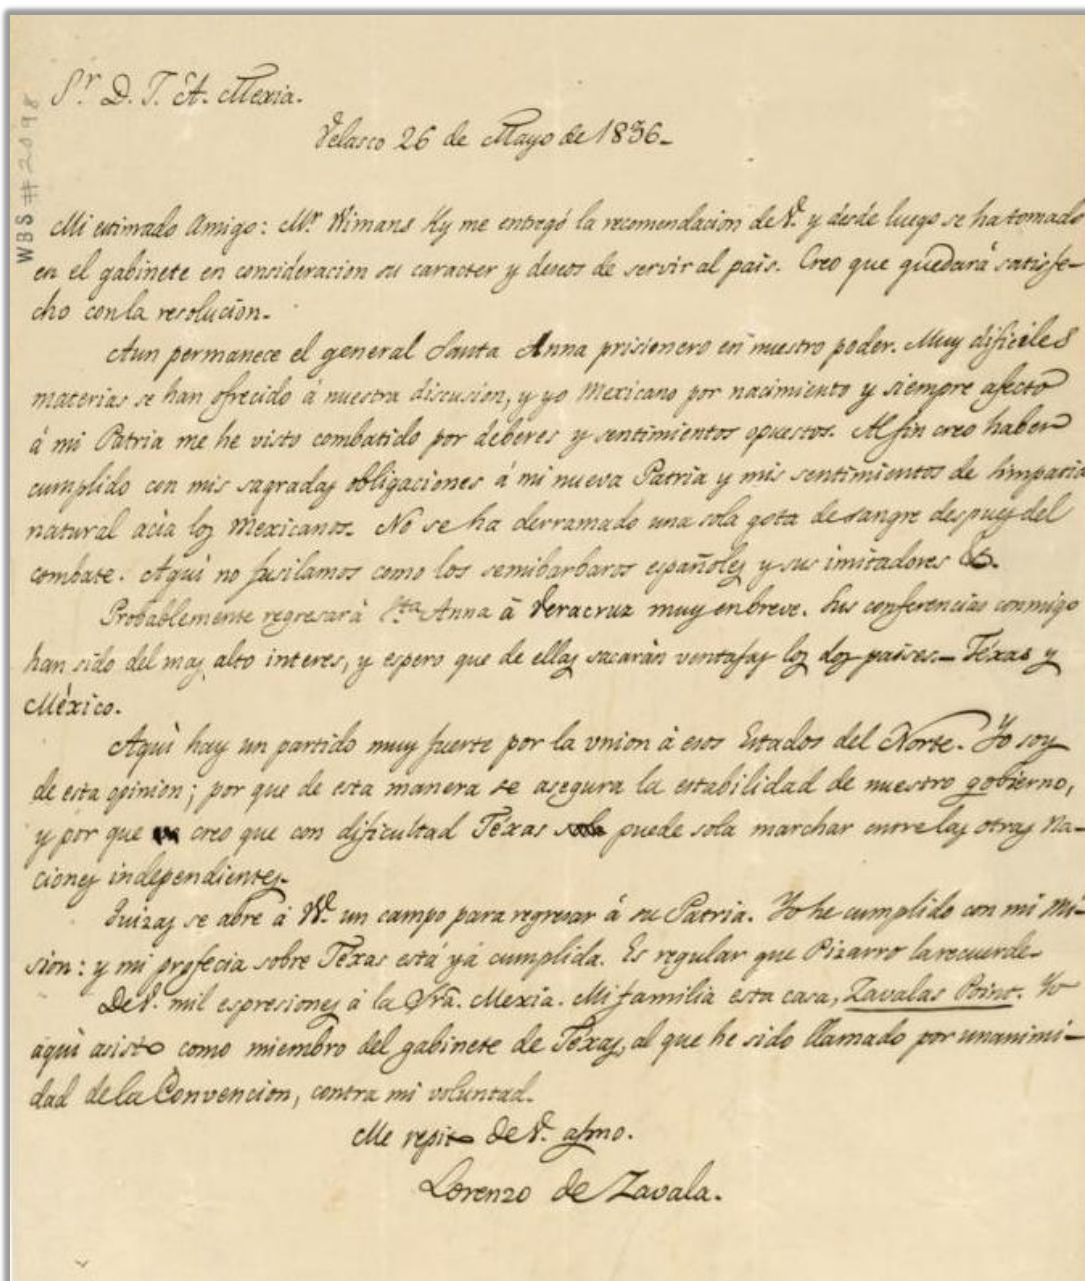 Sr. D. J. A. Mexia.
Velasco 26 de Mayo de 1836.
WBS #2098
Mi estimado Amigo: Mr. Wimans Ky me entregó la recomendacion de V. y desde luego se ha tomado
en el gabinete en consideracion su caracter y deseos de servir al pais. Creo que quedará satisfe-
cho con la resolucion.
Aun permanece el general Santa Anna prisionero en nuestro poder. Muy dificiles
materias se han ofrecido á nuestra discusion, y yo Mexicano por nacimiento y siempre afecto
á mi Patria me he visto combatido por deberes y sentimientos opuestos. Al fin creo haber
cumplido con mis sagradas obligaciones á mi nueva Patria y mis sentimientos de simpatia
natural acia los Mexicanos. No se ha derramado una sola gota de sangre despues del
combate. Aqui no fusilamos como los semibarbaros españoles y sus imitadores &.
Probablemente regresará Sta. Anna á Veracruz muy en breve. Sus conferencias conmigo
han sido del mas alto interes, y espero que de ellas sacarán ventajas los dos paises.— Téxas y
México.
Aquì hay un partido muy fuerte por la union á esos Estados del Norte. Yo soy
de esta opinion; por que de esta manera se asegura la estabilidad de nuestro gobierno,
y por que creo que con dificultad Téxas puede sola marchar entre las otras na-
ciones independientes.
Quizas se abre á V. un campo para regresar á su Patria. Yo he cumplido con mi mi-
sion: y mi profecia sobre Texas está yá cumplida. Es regular que Pizarro la recuerde.
De V. mil espresiones á la Sra. Mexia. Mi familia esta casa, Zavalas Point. Yo
aquì asisto como miembro del gabinete de Téxas, al que he sido llamado por unanimi-
dad de la Convencion, contra mi voluntad.
Me repito de V. afmo.
Lorenzo de Zavala.